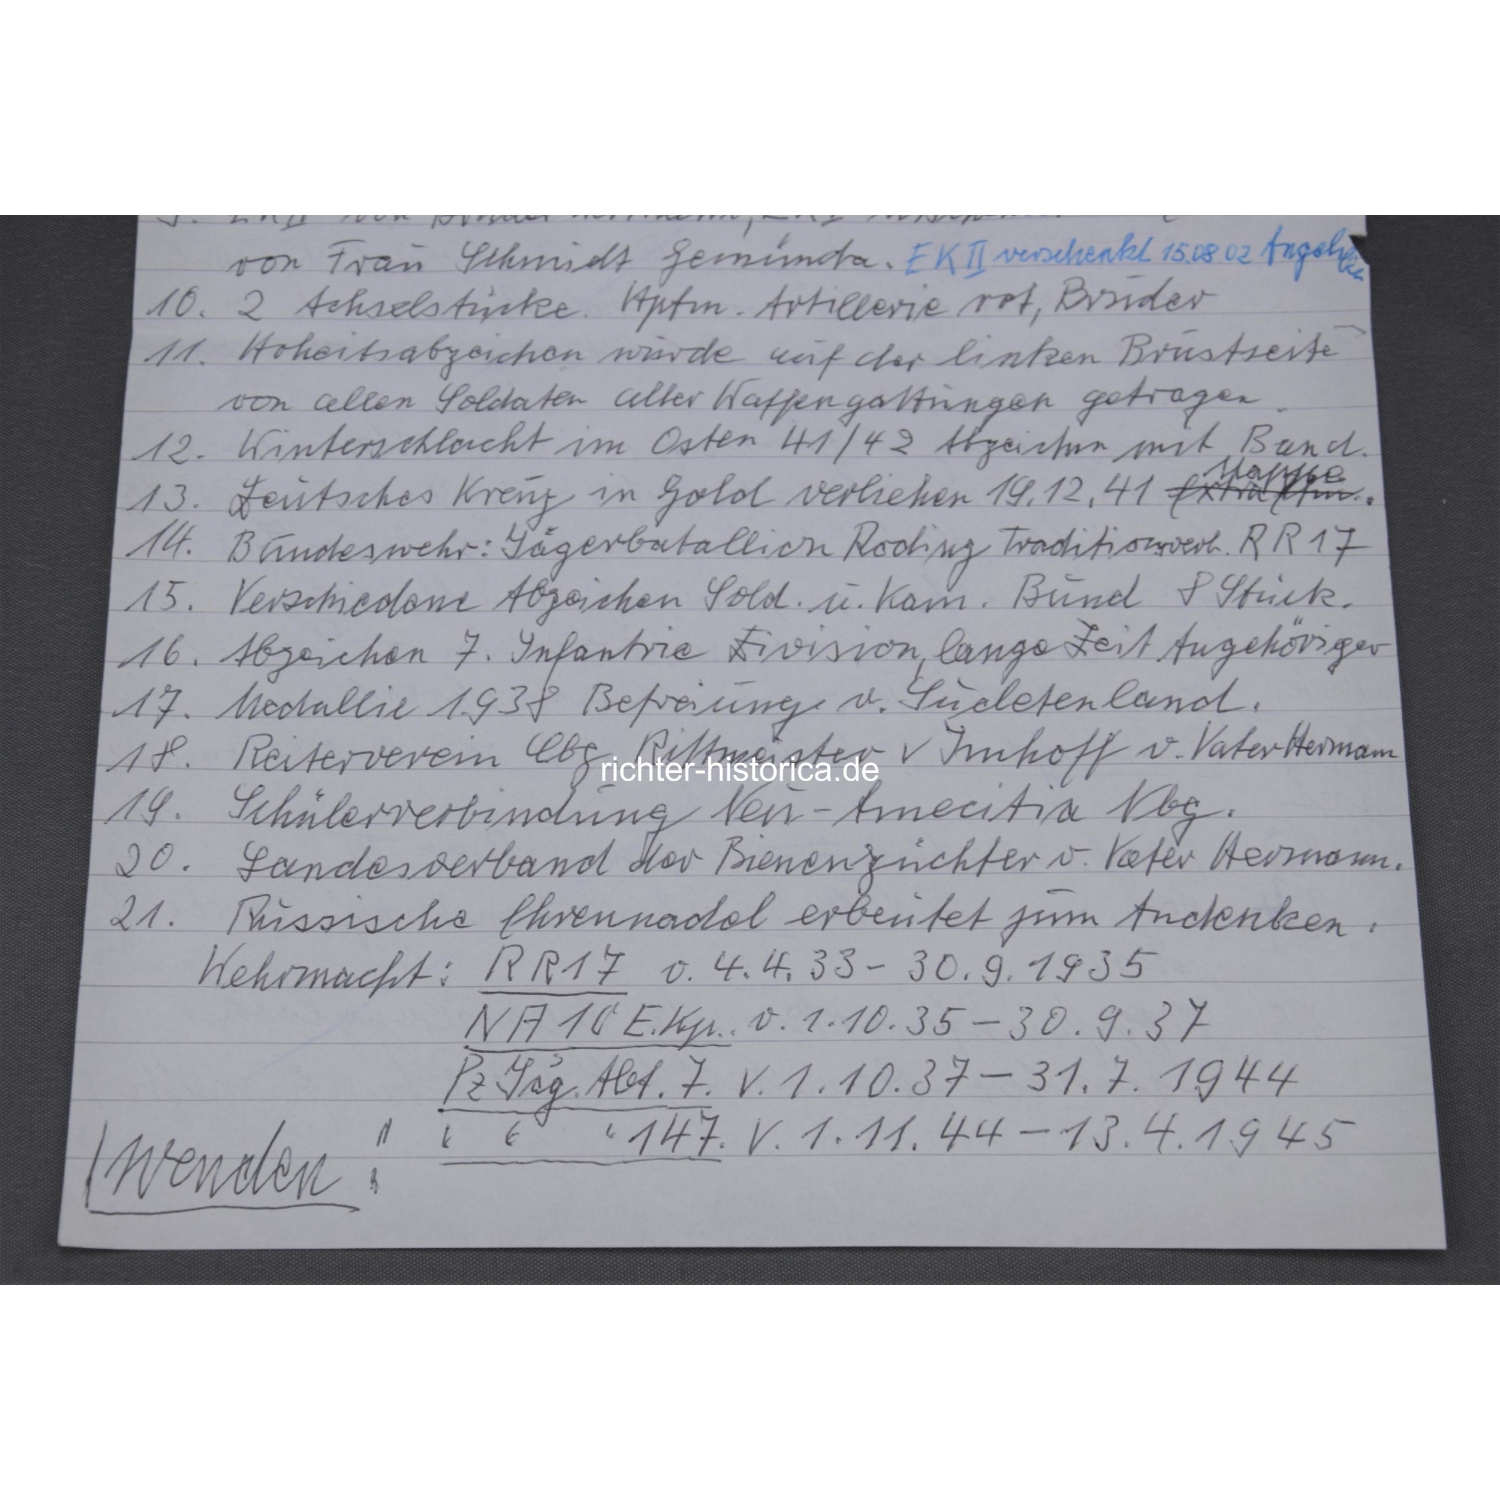 9. EK II von Bruder Hermann, EK I
von Frau Schmidt Gemünda. EK II verschenkt 15.08 02
10. 2 Achselstücke. Hptm. Artillerie rot, Bruder
11. Hoheitsabzeichen wurde auf der linken Brustseite
von allen Soldaten aller Waffengattungen getragen.
12. Winterschlacht im Osten 41/42 Abzeichen mit Band.
13. Deutsches Kreuz in Gold verliehen 19.12.41 Mappe
14. Bundeswehr: Jägerbatallion Roding Traditionsverb. RR17
15. Verschiedene Abzeichen Sold. u. Kam. Bund 8 Stück.
16. Abzeichen 7. Infantrie Division, lange Zeit Angehöriger
17. Medallie 1938 Befreiung v. Sudetenland.
18. Reiterverein Cbg Rittmeister v Imhoff v. Vater Hermann
19. Schülerverbindung Neu-Amecitia Nbg.
20. Landesverband der Bienenzüchter v. Vater Hermann.
21. Russische Ehrennadel erbeutet zum Andenken.
Wehrmacht: RR17 v. 4.4.33-30.9.1935
NA 10 E.Kp. v. 1.10.35-30.9.37
Pz Jäg. Abt. 7. v. 1.10.37-31.7.1944
" " " " 147. v. 1.11.44-13.4.1945
wenden
richter-historica.de